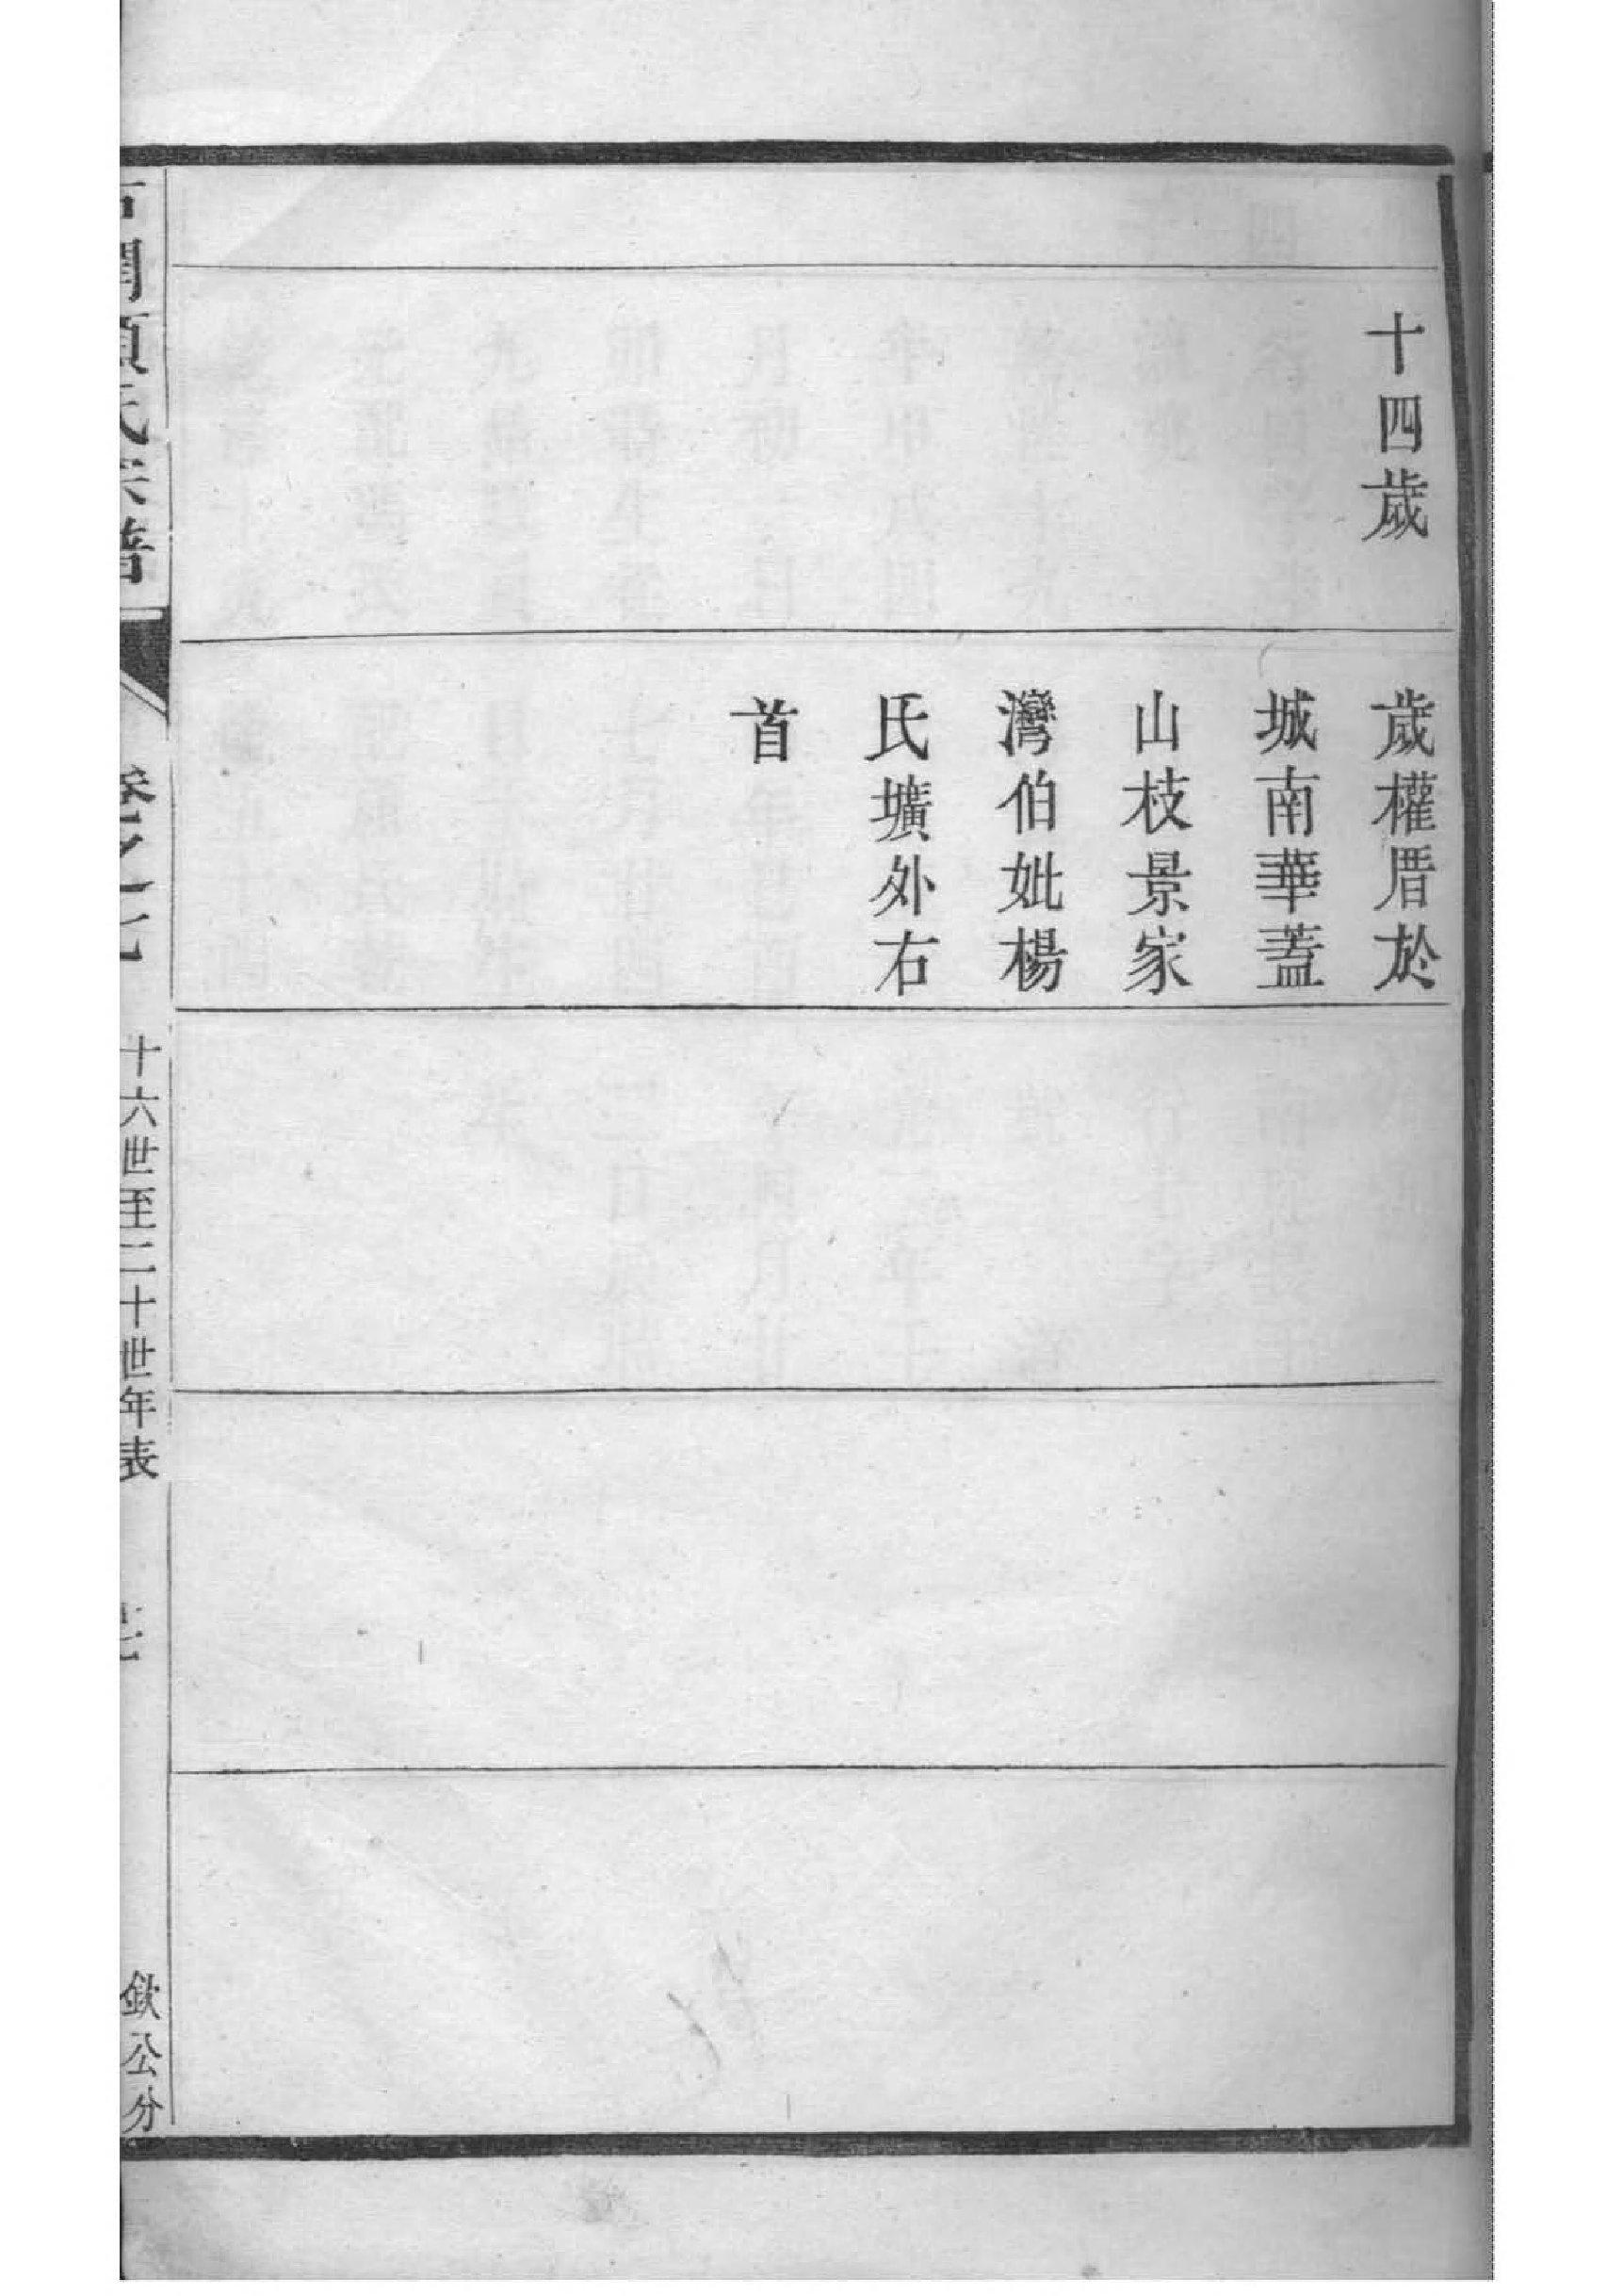 十四歲
歲權厝於
城南華蓋
山枝景家
灣伯妣楊
氏壙外右
首
氏宗譜
卷之十七
十六世至二十世年表
欽公分